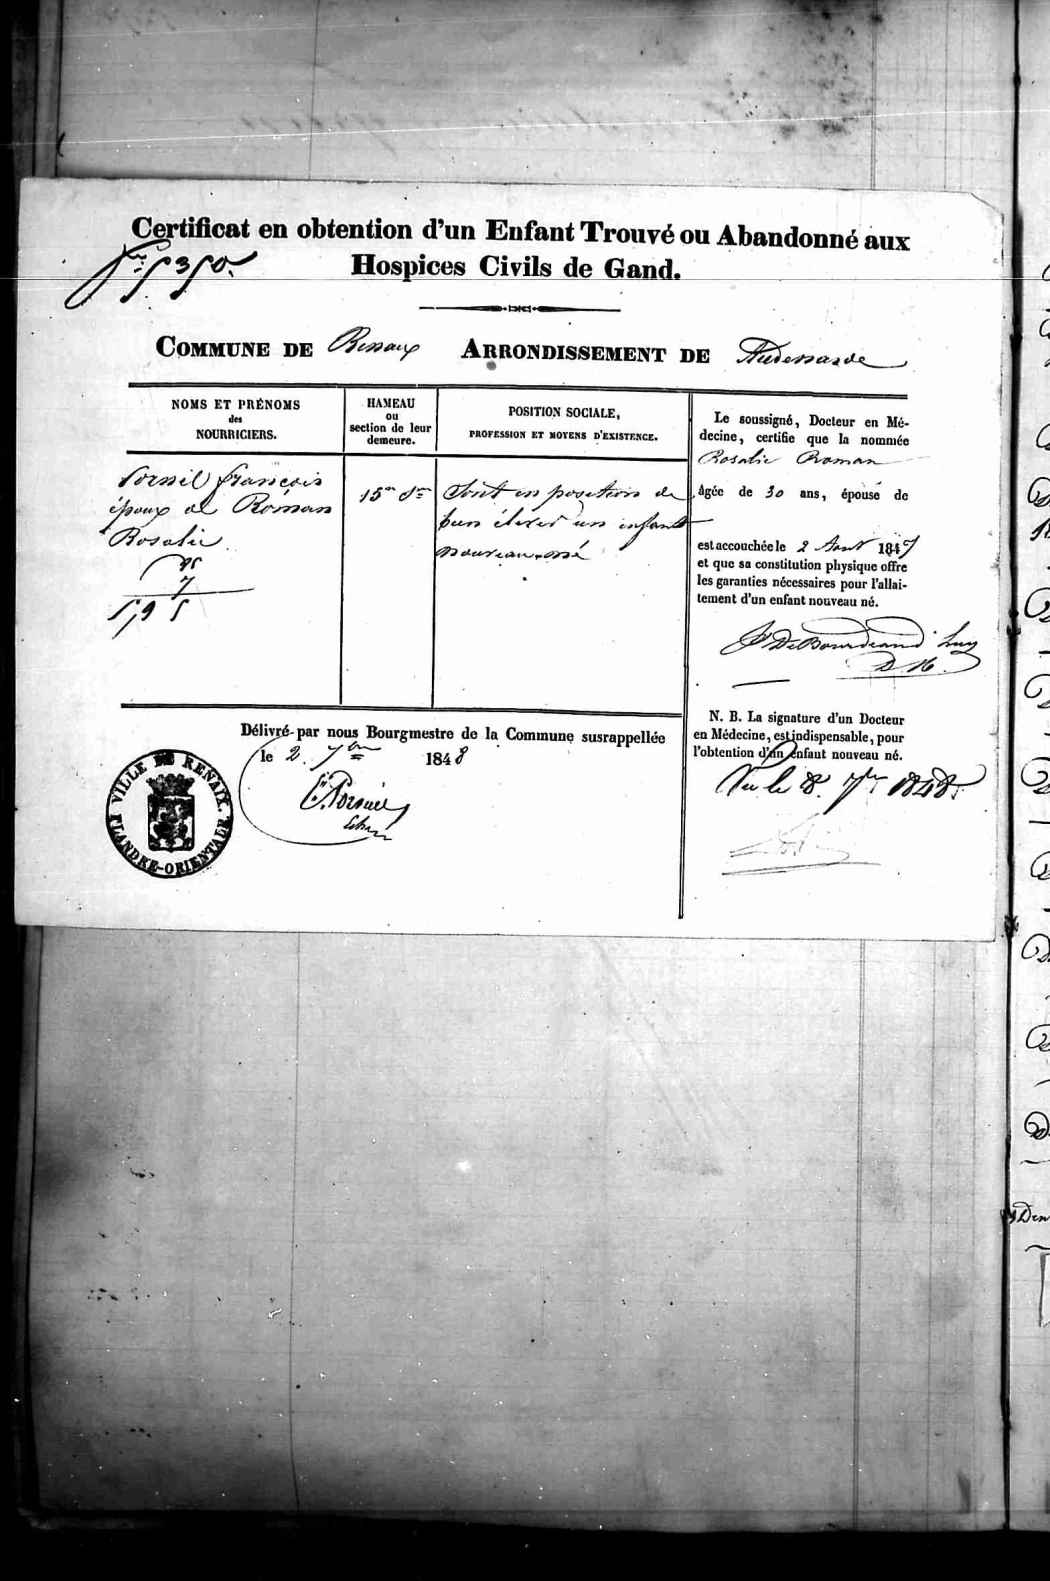 Certificat en obtention d'un Enfant Trouvé ou Abandonné aux
Hospices Civils de Gand.
5350.
COMMUNE DE Renaix ARRONDISSEMENT DE Audenarde
NOMS ET PRÉNOMS
des
NOURRICIERS.
HAMEAU
ou
section de leur
demeure.
POSITION SOCIALE,
PROFESSION ET MOYENS D'EXISTENCE.
françois
époux de Roman
Rosalie
15me Son
Sont en position de
bien élever un enfant
nouveau-né
Le soussigné, Docteur en Mé-
decine, certifie que la nommée
Rosalie Roman
Agée de 30 ans, épouse de
est accouchée le 2 Aout 1847
et que sa constitution physique offre
les garanties nécessaires pour l'allai-
tement d'un enfant nouveau né.
N. B. La signature d'un Docteur
en Médecine, est indispensable, pour
l'obtention d'un enfant nouveau né.
Vu le 8. 7bre 1848.
Délivré par nous Bourgmestre de la Commune susrappellée
le 2. 7bre 1848
VILLE DE RENAIX.
FLANDRE-ORIENTALE